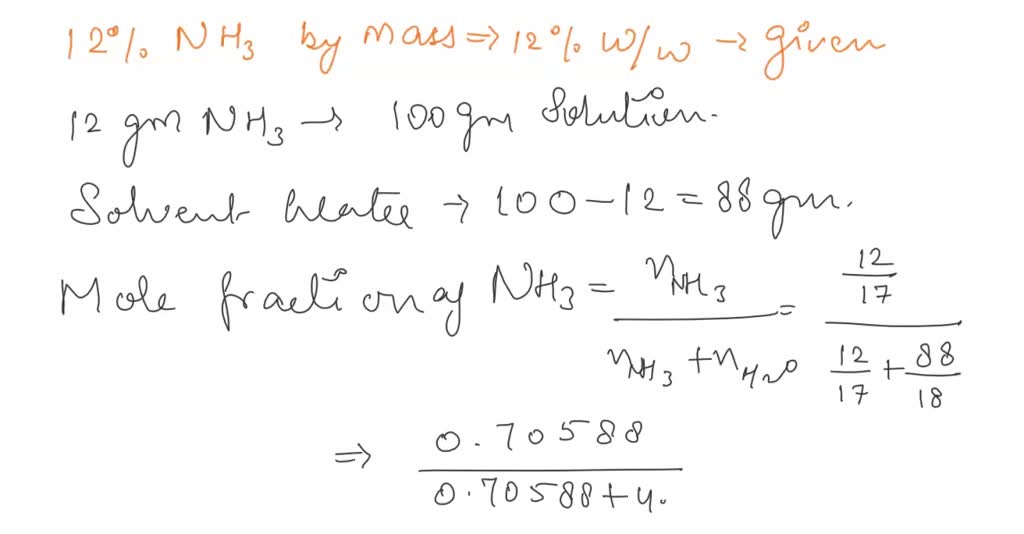 12% NH3 by mass ⇒ 12% w/w → given
12 gm NH3 → 100 gm Solution.
Solvent → 100 - 12 = 88 gm.
Mole fraction of NH3 = nNH3 / nNH3 + nH2O = 12/17 / 12/17 + 88/18
⇒ 0.70588 / 0.70588 + 4.